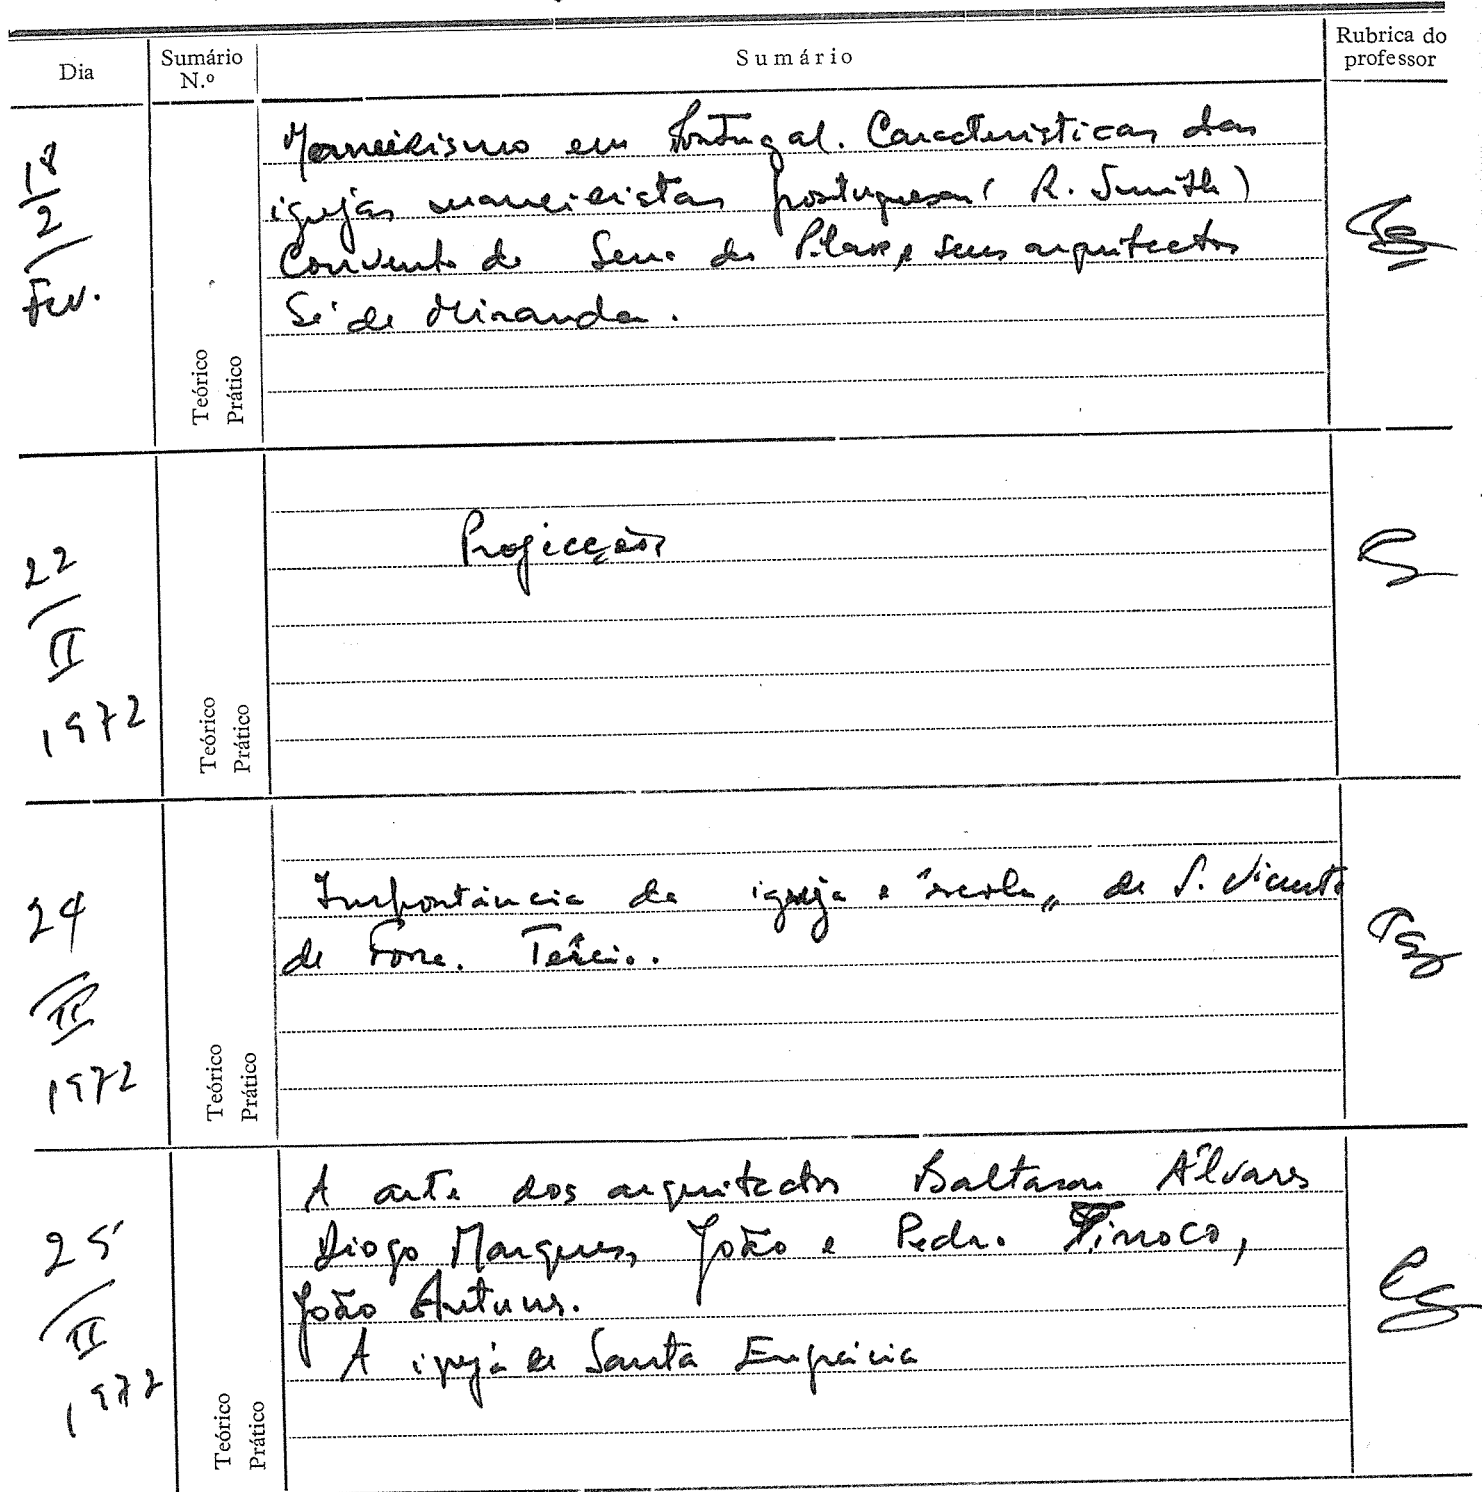 Dia
Sumário N.º
Sumário
Rubrica do professor
18
2
Fev.
Maneirismo em Portugal. Características das
igrejas maneiristas portuguesas (R. Smith)
Convento da Serra do Pilar e seus arquitectos
Sé de Miranda.
Teórico
Prático
22
II
1972
Projecções
Teórico
Prático
24
II
1972
Importância da igreja e "escola" de S. Vicente
de Fora. Terzio.
Teórico
Prático
25
II
1972
A arte dos arquitectos Baltasar Álvares
Diogo Marques, João e Pedro Tinoco,
João Antunes.
A igreja de Santa Engrácia
Teórico
Prático